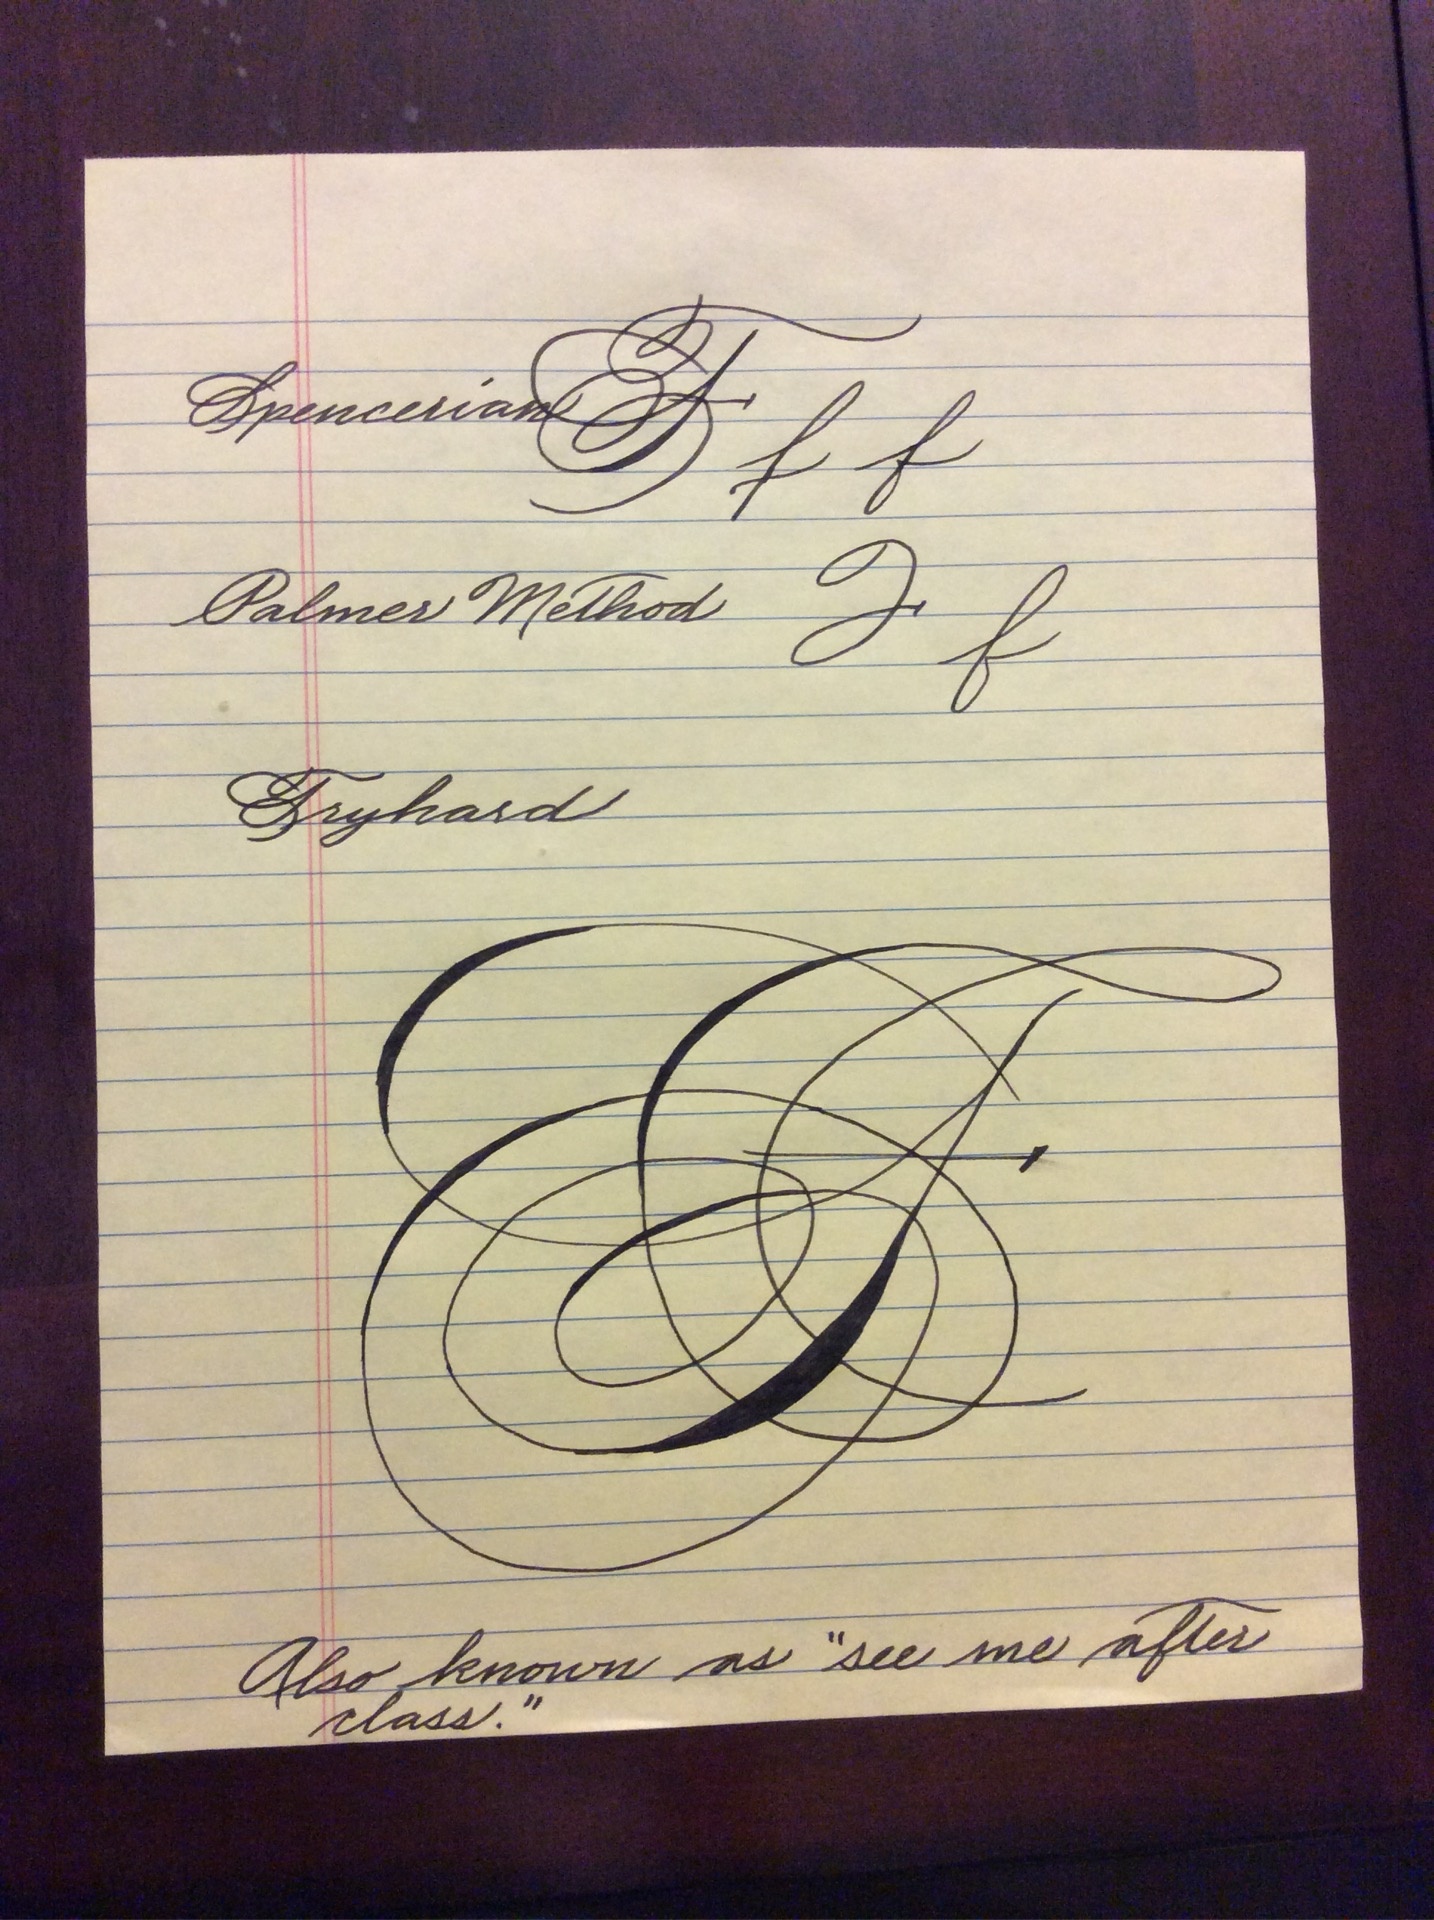 Spencerian F f f
Palmer Method F f
Tryhard
F
Also known as "see me after
class."